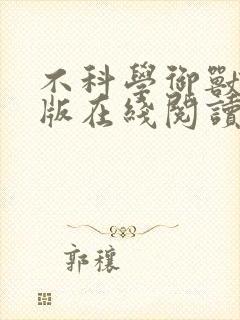 不科學御獸
版在綫閱讀
郭穰